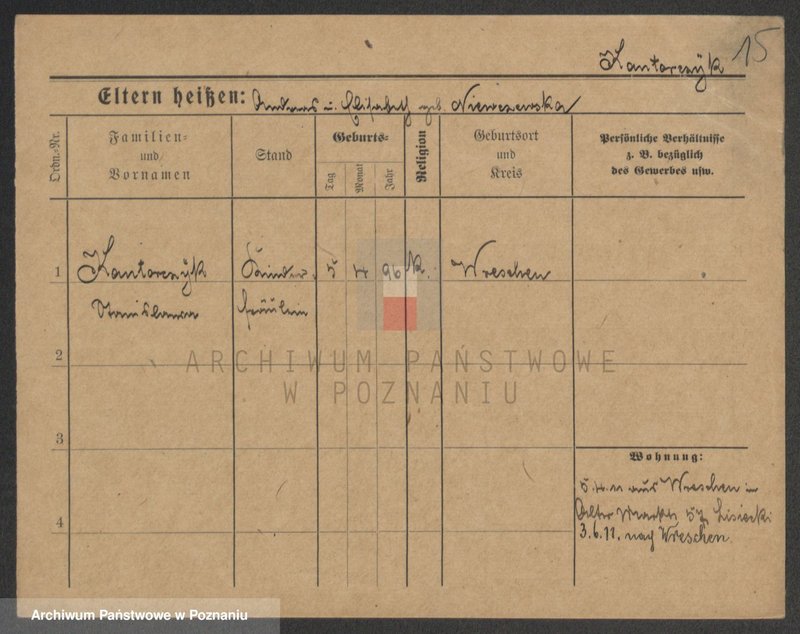 15
Kantorczyk
Eltern heißen: Andreas u. Elisabeth geb. Niewczewska
Ordn.=Nr.
Familien=
und
Vornamen
Stand
Geburts=
Tag
Monat
Jahr
Religion
Geburtsort
und
Kreis
Persönliche Verhältnisse
z. B. bezüglich
des Gewerbes usw.
1
Kantorczyk
Stanislawa
Kinder-
fräulein
5 4 96 K. Wreschen
2
ARCHIWUM PAŃSTWOWE
W POZNANIU
3
Wohnung:
5.4.11 aus Wreschen
Alter Markt 57 Lisiecki
3.6.11. nach Wreschen
4
Archiwum Państwowe w Poznaniu